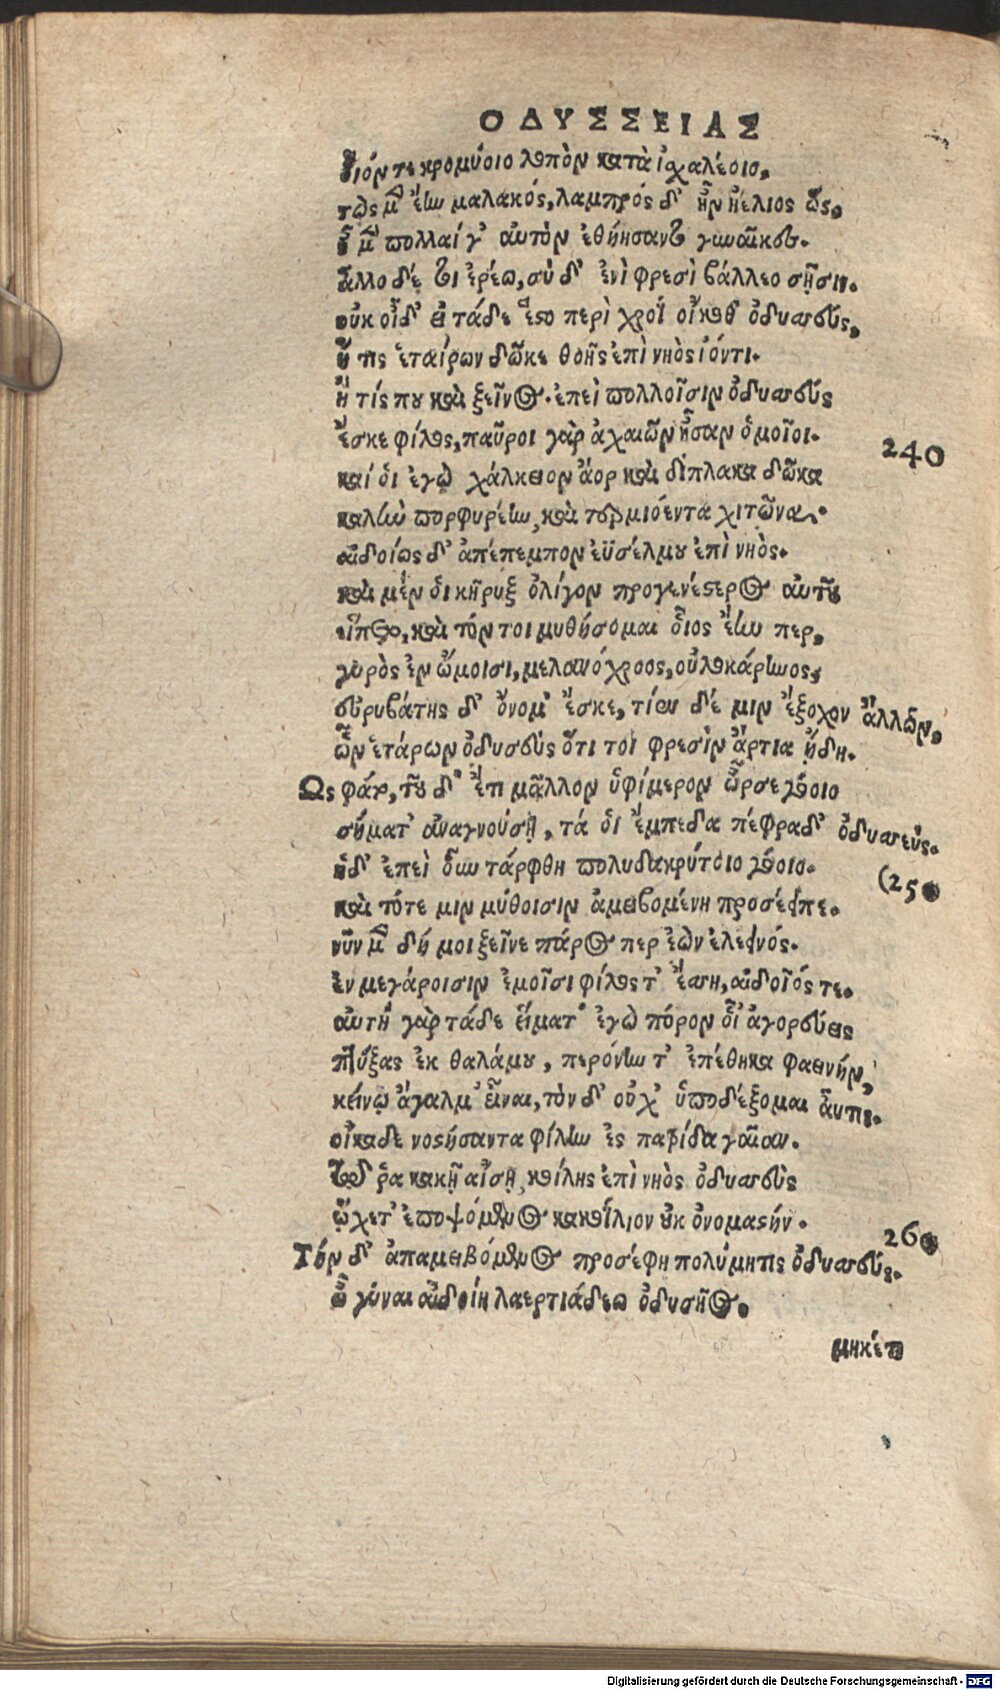 ΟΔΥΣΣΕΙΑΣ
οἷόν τε κρομύοιο λοπὸν κατὰ ἰσχαλέοιο,
τὼς μὲν ἔην μαλακός, λαμπρός δ' ἦν ἠέλιος ὥς,
ἦ μὲν πολλαί γ' αὐτὸν ἐθήησαντο γυναῖκες.
ἄλλο δέ τοι ἐρέω, σὺ δ' ἐνὶ φρεσὶ βάλλεο σῇσιν.
οὐκ οἶδ' εἰ τάδε ἕστο περὶ χροῒ οἴκοθ' ὀδυσσεύς,
ἤ τις ἑταίρων δῶκε θοῆς ἐπὶ νηὸς ἰόντι.
ἤ τίς που καὶ ξεῖνος. ἐπεὶ πολλοῖσιν ὀδυσσεύς
ἔσκε φίλος, παῦροι γὰρ ἀχαιῶν ἦσαν ὁμοῖοι.
240
καί οἱ ἐγὼ χάλκειον ἄορ καὶ δίπλακα δῶκα
καλὴν πορφυρέην, καὶ τερμιόεντα χιτῶνα.
αἰδοίως δ' ἀπέπεμπον ἐϋσέλμου ἐπὶ νηὸς.
καὶ μέν οἱ κῆρυξ ὀλίγον προγενέστερος αὐτοῦ
εἵπετο, καὶ τόν τοι μυθήσομαι οἷος ἔην περ,
γυρὸς ἐν ὤμοισι, μελανόχροος, οὐλοκάρηνος,
εὐρυβάτης δ' ὄνομ' ἔσκε, τίεν δέ μιν ἔξοχον ἄλλων,
ὧν ἑτάρων ὀδυσσεὺς ὅτι τοι φρεσὶν ἄρτια ᾔδη.
Ως φάτο, τοῦ δ' ἔτι μᾶλλον ὑφίμερον ὦρσε γόοιο
σήματ' ἀναγνούσῃ, τά οἱ ἔμπεδα πέφραδ' ὀδυσσεύς.
ἡδ' ἐπεὶ οὖν τάρφθη πολυδακρύτοιο γόοιο.
(250
καὶ τότε μιν μύθοισιν ἀμειβομένη προσέειπε.
νῦν μὲν δή μοι ξεῖνε πάρος περ ἐὼν ἐλεεινός.
ἐν μεγάροισιν ἐμοῖσι φίλος τ' ἔσῃ, αἰδοῖός τε.
αὐτὴ γὰρ τάδε εἵματ' ἐγὼ πόρον οἷ' ἀγορεύεις
πτύξας ἐκ θαλάμου, περόνην τ' ἐπέθηκα φαεινήν,
κείνῳ ἄγαλμ' εἶναι, τὸν δ' οὐχ' ὑποδέξομαι αὖτις.
οἴκαδε νοστήσαντα φίλην ἐς πατρίδα γαῖαν.
τῷ ῥα κακῇ αἴσῃ κοίλης ἐπὶ νηὸς ὀδυσσεὺς
ᾤχετ' ἐποψόμενος κακοΐλιον οὐκ ὀνομαστήν.
260
Τὸν δ' ἀπαμειβόμενος προσέφη πολύμητις ὀδυσσεύς.
ὦ γύναι αἰδοίη λαερτιάδεω ὀδυσῆος.
μηκέτι
Digitalisierung gefördert durch die Deutsche Forschungsgemeinschaft - DFG